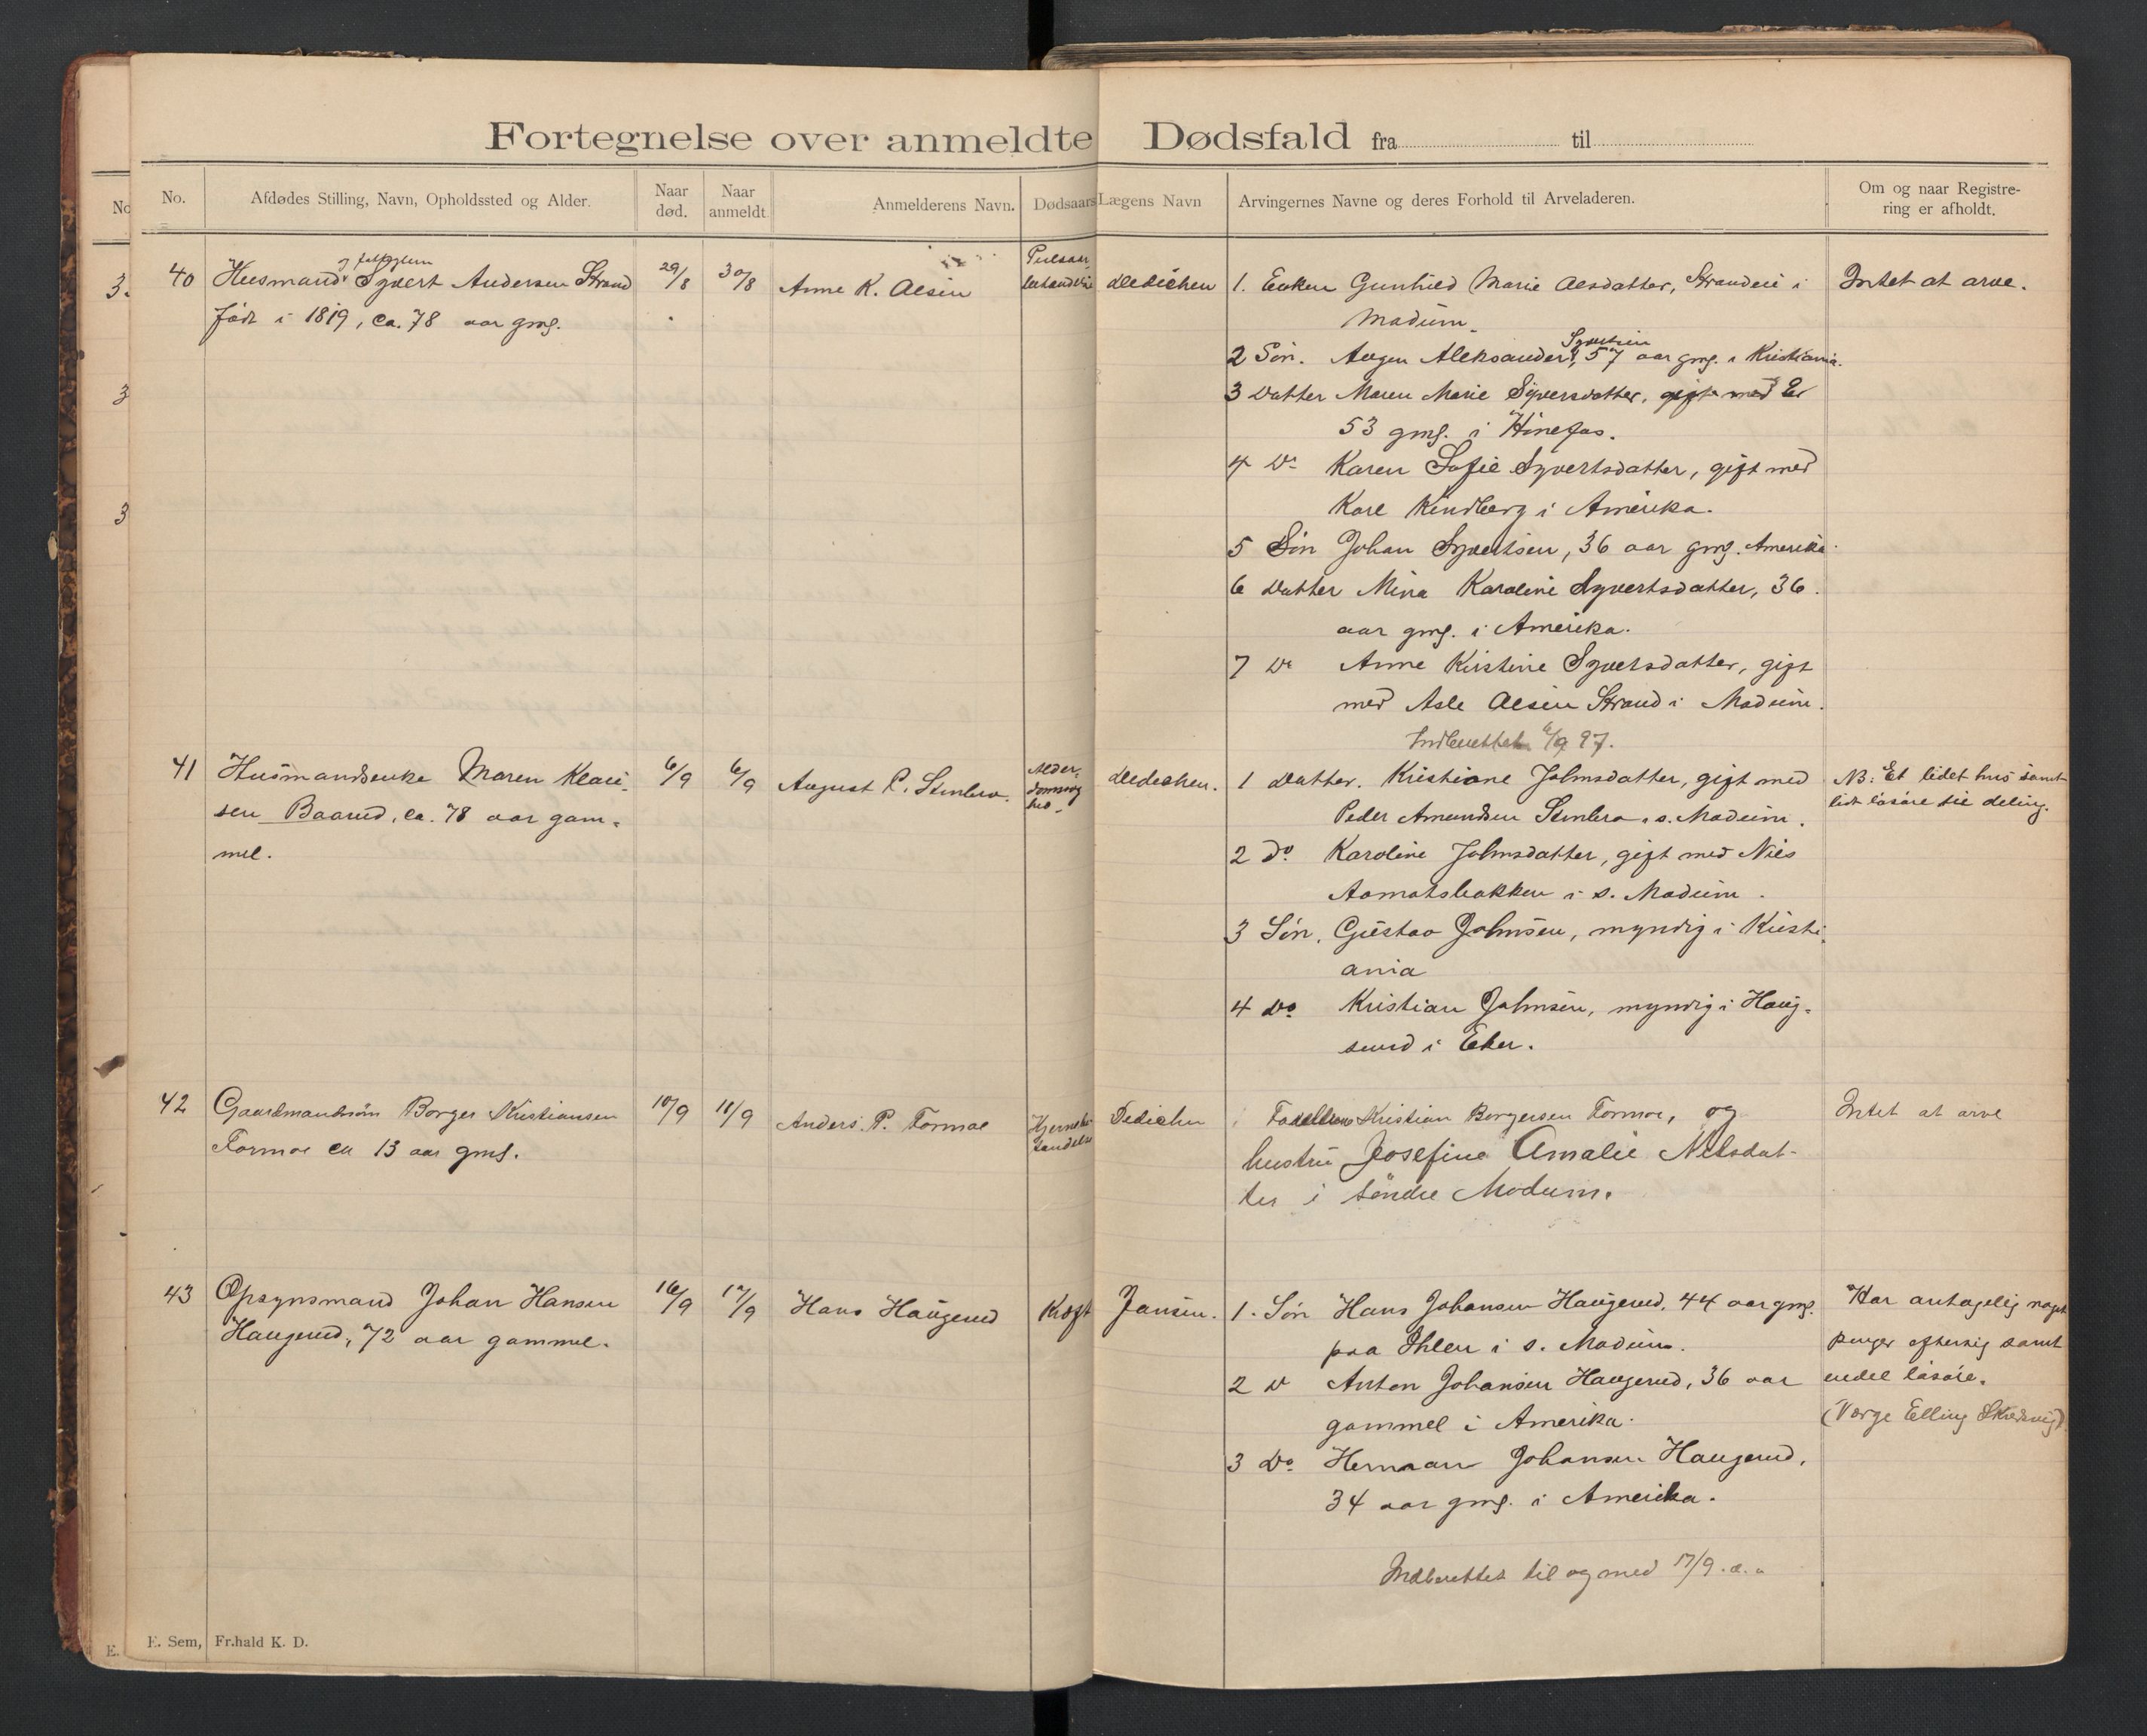 Fortegnelse over anmeldte Dødsfald fra til
No. Afdødes Stilling, Navn, Opholdssted og Alder. Naar død. Naar anmeldt. Anmelderens Navn. Dødsaars Lægens Navn Arvingernes Navne og deres Forhold til Arveladeren. Om og naar Registrering er afholdt.
40 Husmand Syvert Andersen Strand 29/8 30/8 Anne K. Olsen
født i 1819, ca. 78 aar gml.
1. Enken Gunhild Marie Olsdatter, Strandeie i Intet at arve.
Modum
Syvertsen
2 Søn. Aleksander, 57 aar gml. i Kristiania.
3 Datter Maren Marie Syversdatter, gift med Er
53 gml. i
4 Do Karen Sofie Syvertsdatter, gift med
Karl Kindberg i Amerika.
5 Søn Johan Syvertsen, 36 aar gml. Amerika.
6 Datter Mina Karoline Syvertsdatter, 36
aar gml. i Amerika.
7 Do Anne Kirstine Syvertsdatter, gift
med Asle Olsen Strand i Modum.
Indberettet 6/9 97.
41 Husmandsenke Maren 6/9 6/9 August P. Stenbro. Alder-
sen Baarud, ca. 78 aar gam-
mel.
1 Datter. Kristiane Johnsdatter, gift med NB: Et lidet hus samt
Peder Amundsen Stenbro i s. Modum. lidt løsøre til deling.
2 Do Karoline Johnsdatter, gift med Nils
Aamotsbakken i s. Modum.
3 Søn, Gustav Johnsen, myndig i Kristi-
ania
4 Do Kristian Johnsen, myndig i Haug-
sund i Eker.
42 Gaardmandssøn Borger Kristiansen 10/9 11/9 Anders P. Formoe Hjernebe- Dedichen
Formoe ca 13 aar gml. tændelse
Forældrene Kristian Borgersen Formoe, og Intet at arve
hustru Josefine Amalie Nilsdat-
ter i søndre Modum.
43 Opsynsmand Johan Hansen 16/9 17/9 Hans Haugerud Kræft Jansen.
Haugerud, 72 aar gammel.
1. Søn Hans Johansen Haugerud, 44 aar gml. Har antagelig noget
paa Ihlen i s. Modum. penger eftersig samt
2 D Anton Johansen Haugerud, 36 aar endel løsøre.
gammel i Amerika. (Værge Elling Skredsvig)
3 Do Herman Johansen Haugerud,
34 aar gml. i Amerika.
Indberettet til og med 17/9 d.a.
E. Sem, Fr.hald K. D.